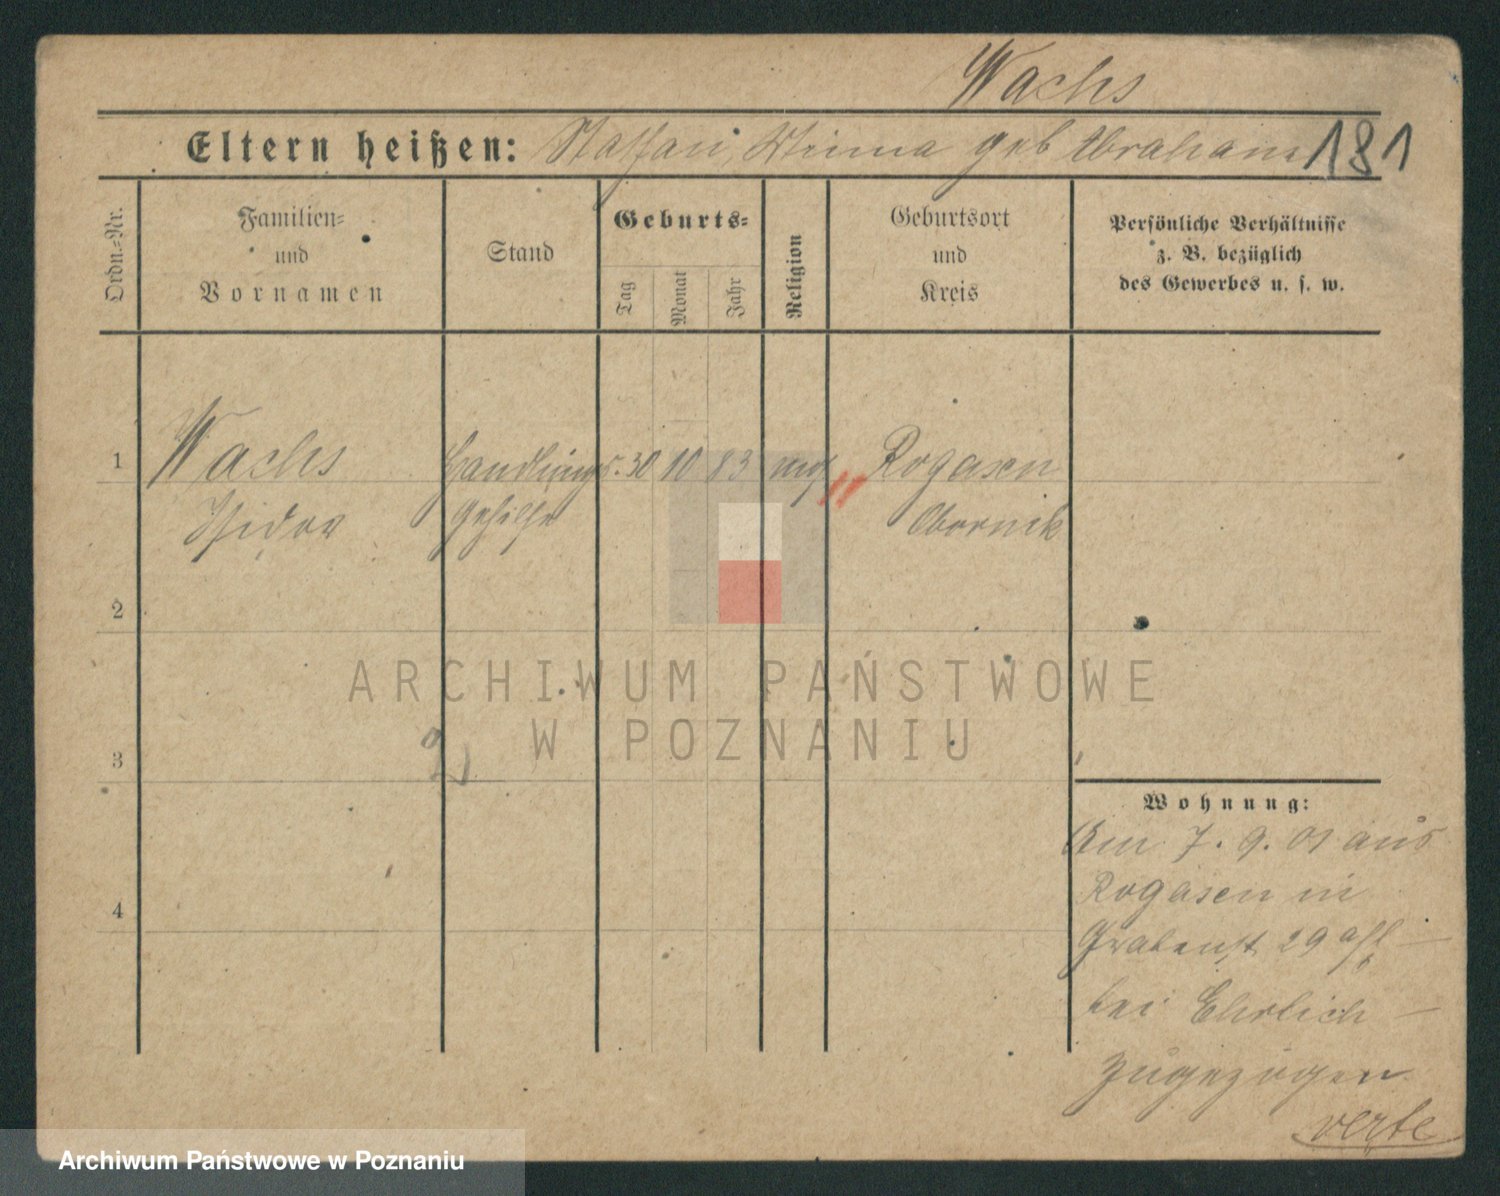 Wachs
Eltern heißen: geb Abraham 181
Ordn.-Nr.
Familien-
und
Vornamen
Stand
Geburts-
Tag
Monat
Jahr
Religion
Geburtsort
und
Kreis
Persönliche Verhältnisse
z. B. bezüglich
des Gewerbes u. s. w.
1 Wachs Handlungs- 30 10 83 mos Rogasen
Isidor Gehilfe Obornik
2
3
4
Wohnung:
Am 7. 9. 01 aus
Rogasen in
Grabenst 29
bei Ehrlich
zugezogen
verte
ARCHIWUM PAŃSTWOWE
W POZNANIU
Archiwum Państwowe w Poznaniu